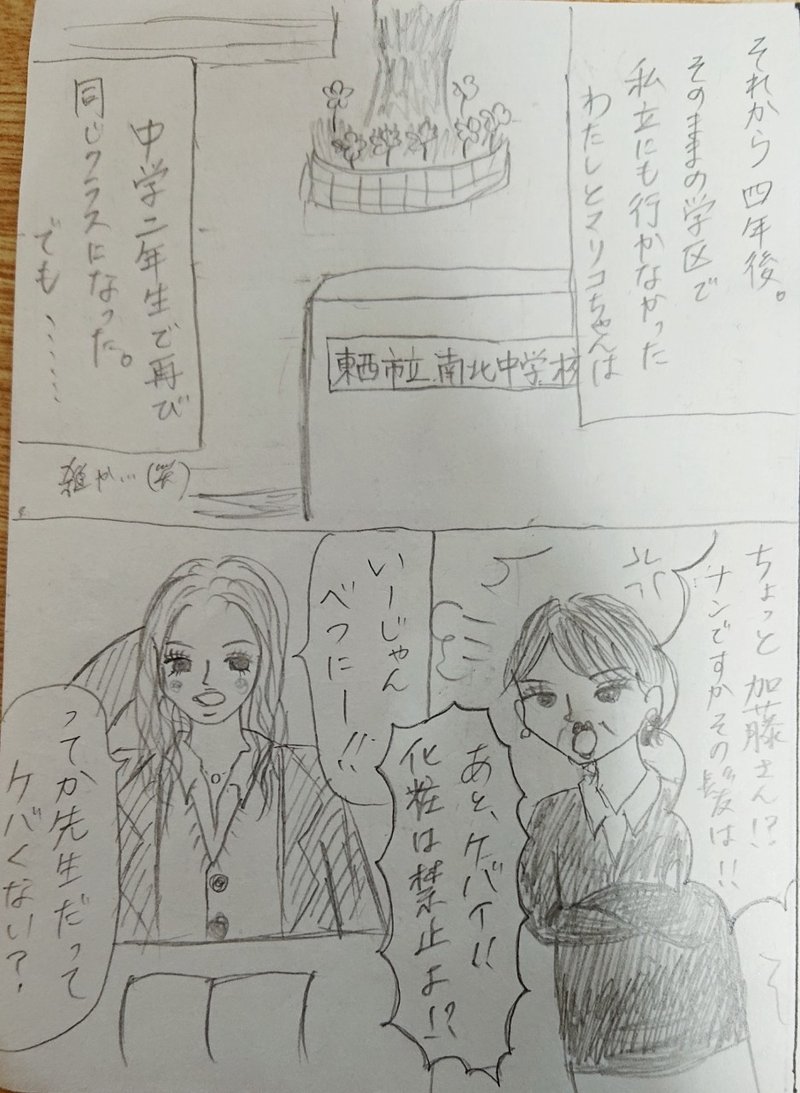 それから四年後。
そのままの学区で
私立にも行かなかった
わたしとマリコちゃんは
東西市立南北中学校
中学二年生で再び
同じクラスになった。
でも……
雑や…(笑)
ちょっと加藤さん!?
ナンですかその髪は!!
あと、ケバイ!!
化粧は禁止よ!?
いーじゃん
べつにー!!
ってか先生だって
ケバくない?